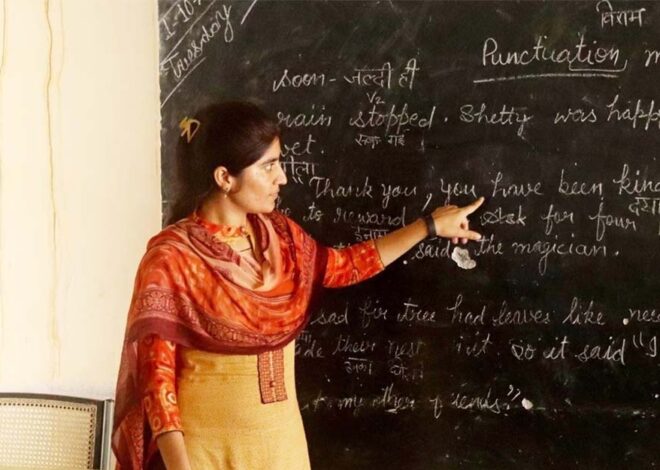 विराम
1-10
Tuesday
Punctuation, m
soon - जल्दी ही
V2
rain stopped. Shetty was happ
रूक गई
wet.
गीला
"Thank you, you have been kind
to reward ask for four
ईनाम
said the magician.
sad fir tree had leaves like nee
their nest in it. So it said "I
to my other friends".